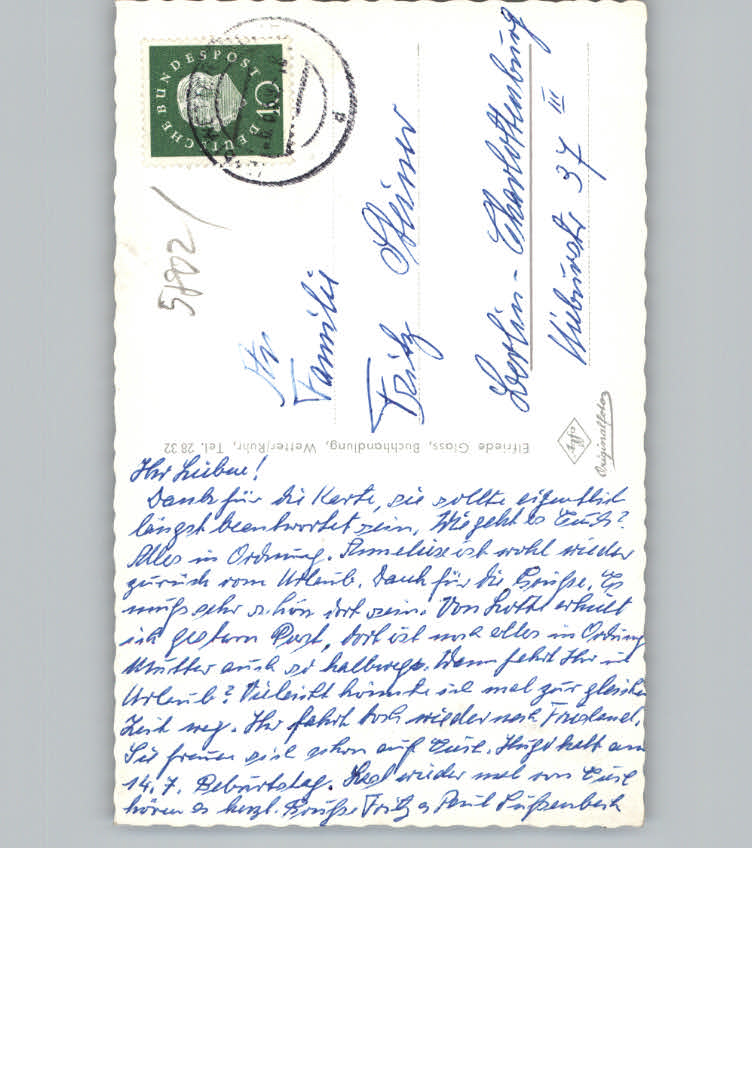 DEUTSCHE BUNDESPOST
10
5802/
An
Familie
Fritz Steiner
Berlin-Charlottenburg
Niebuhrstr 37 III
Elfriede Glass, Buchhandlung, Wetter/Ruhr, Tel. 28 32
Originalfoto
Ihr Lieben!
Dank für die Karte, sie sollte eigentlich
längst beantwortet sein. Wie geht es Euch?
Alles in Ordnung. Anneliese ist wohl wieder
zurück vom Urlaub. Dank für die Grüße. Es
muß sehr schön dort sein. Von Lotte erhielt
ich gestern Post, dort ist noch alles in Ordnung
Mutter auch so halbwegs. Wann fahrt Ihr in
Urlaub? Vielleicht könnte ich mal zur gleichen
Zeit weg. Ihr fahrt doch wieder nach
Sie freuen sich schon auf Euch. Hugo hatt am
14. 7. Geburtstag. wieder mal von Euch
hören es herzl. Grüße Fritz Paul